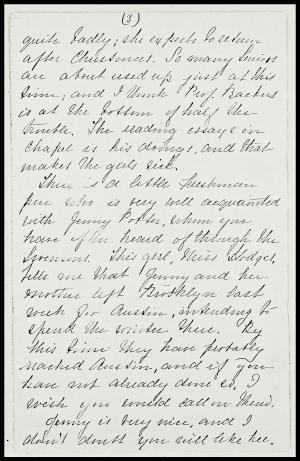 (3)
quite badly; she expects to return
after Christmas. So many Seniors
are about used up just at this
time; and I think Prof. Backus
is at the bottom of half the
trouble. The reading essays in
chapel is his doings, and that
makes the girls sick.
There is a little Freshman
here who is very well acquainted
with Jenny Porter, whom you
have often heard of through the
Lymans. This girl, Miss Hodges,
tells me that Jenny and her
mother left Brooklyn last
week for Austin, intending to
spend the winter there. By
this time they have probably
reached Austin, and if you
have not already done so, I
wish you would call on them.
Jenny is very nice, and I
don't doubt you will like her.